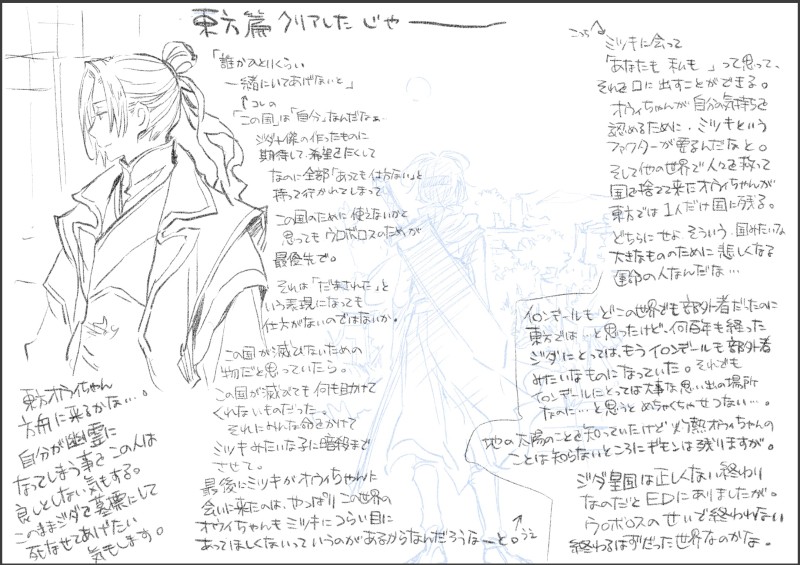 東方篇クリアしたじゃーーー
「誰かひとりくらい
一緒にいてあげないと」
↑コレの
「この国」は「自分」なんだなぁ…
ジダや僕の作ったものに
期待して、希望をたくして
なのに全部「あっても仕方ない」と
持って行かれてしまって
この国のために使えないかと
思ってもウロボロスのためが
最優先で。
それは「だまされた」と
いう表現になっても
仕方がないのではないか。
この国が滅びないための
物だと思っていたら。
この国が滅びても何も助けて
くれないものだった。
それにみんな命をかけて
ミツキみたいな子に暗殺まで
させて。
最後にミツキがオウィちゃんに
会いに来たのは、やっぱりこの世界の
オウィちゃんもミツキにつらい目に
あってほしくないっていうのがあるからなんだろうなーと。
↑うえ
東方オウィちゃん
方舟に来るかな…。
自分が幽霊に
なってしまう事をこの人は
良しとしない気もする。
このままジダを墓標にして
死なせてあげたい
気もします。
こっち
ミツキに会って
「あなたも 私も」って思って、
それを口に出すことができる。
オウィちゃんが自分の気持ちを
認めるために、ミツキという
ファクターが要るんだなと。
そして他の世界で人々を救って
国を捨てて来たオウィちゃんが
東方では1人だけ国に残る。
どちらにせよ そういう、国みたいな
大きなもののために悲しくなる
運命の人なんだな…
イロンデールもどこの世界でも部外者だったのに
東方では…と思ったけど、何百年も経った
ジダにとっては、もうイロンデールも部外者
みたいなものになっていた。それでも
イロンデールにとっては大事な思い出の場所
なのに…と思うとめちゃくちゃせつない…。
地の太陽のことを知っていたけど灼熱オウィちゃんの
ことは知らないところにギモンは残りますが。
ジダ皇国は正しくない終わり
なのだとEDにありましたが。
ウロボロスのせいで終われない
終わるはずだった世界なのかな。